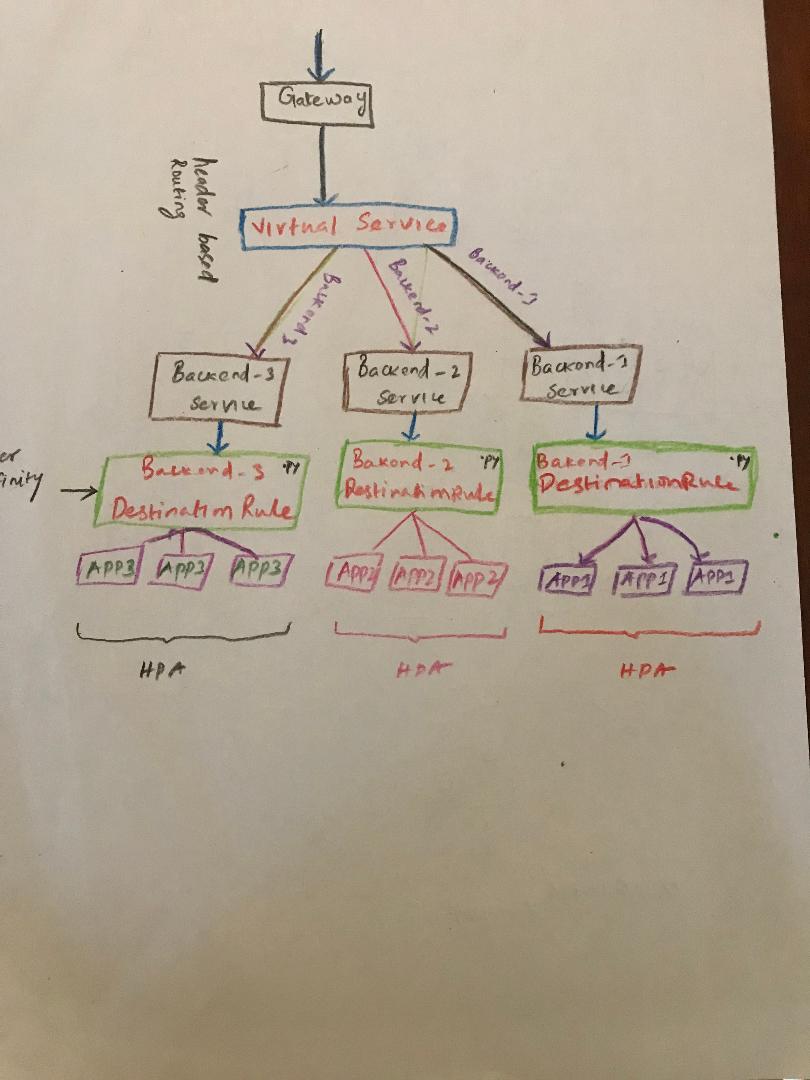 Gateway
header based
Routing
Virtual Service
Backend 3
Backend-2
Backend-1
Backend-3
Service
Backend-2
Service
Backend-1
Service
er
finity
Backend-3 .py
Destination Rule
Bakend-2 .py
DestinationRule
Bakend-1 .py
DestinationRule
APP3 APP3 APP3
APP2 APP2 APP2
APP1 APP1 APP1
HPA
HPA
HPA